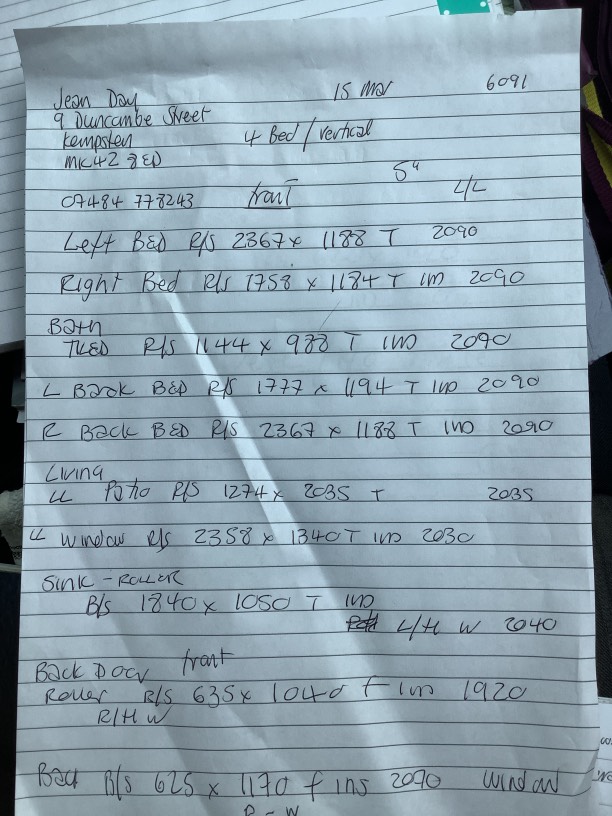 Jean Day 15 Mar 6091
9 Duncambe Street
Kempsten 4 Bed / vertical
MK42 8ED
5"
07484 778243 front L/L
Left BED R/S 2367 x 1188 T 2090
Right Bed R/S 1758 x 1184 T IM 2090
Bath
TILED R/S 1144 x 988 T IM 2090
L Back BED R/S 1777 x 1194 T IM 2090
R Back BED R/S 2367 x 1188 T IM 2090
Living
LL Patio R/S 1274 x 2035 T 2035
LL Window R/S 2358 x 1340 T IM 2030
SINK - ROLLER
B/S 1840 x 1050 T IM
L/H W 2040
Back Door front
Roller R/S 635 x 1040 f IM 1920
R/H W
B/S 625 x 1170 f ins 2090 window